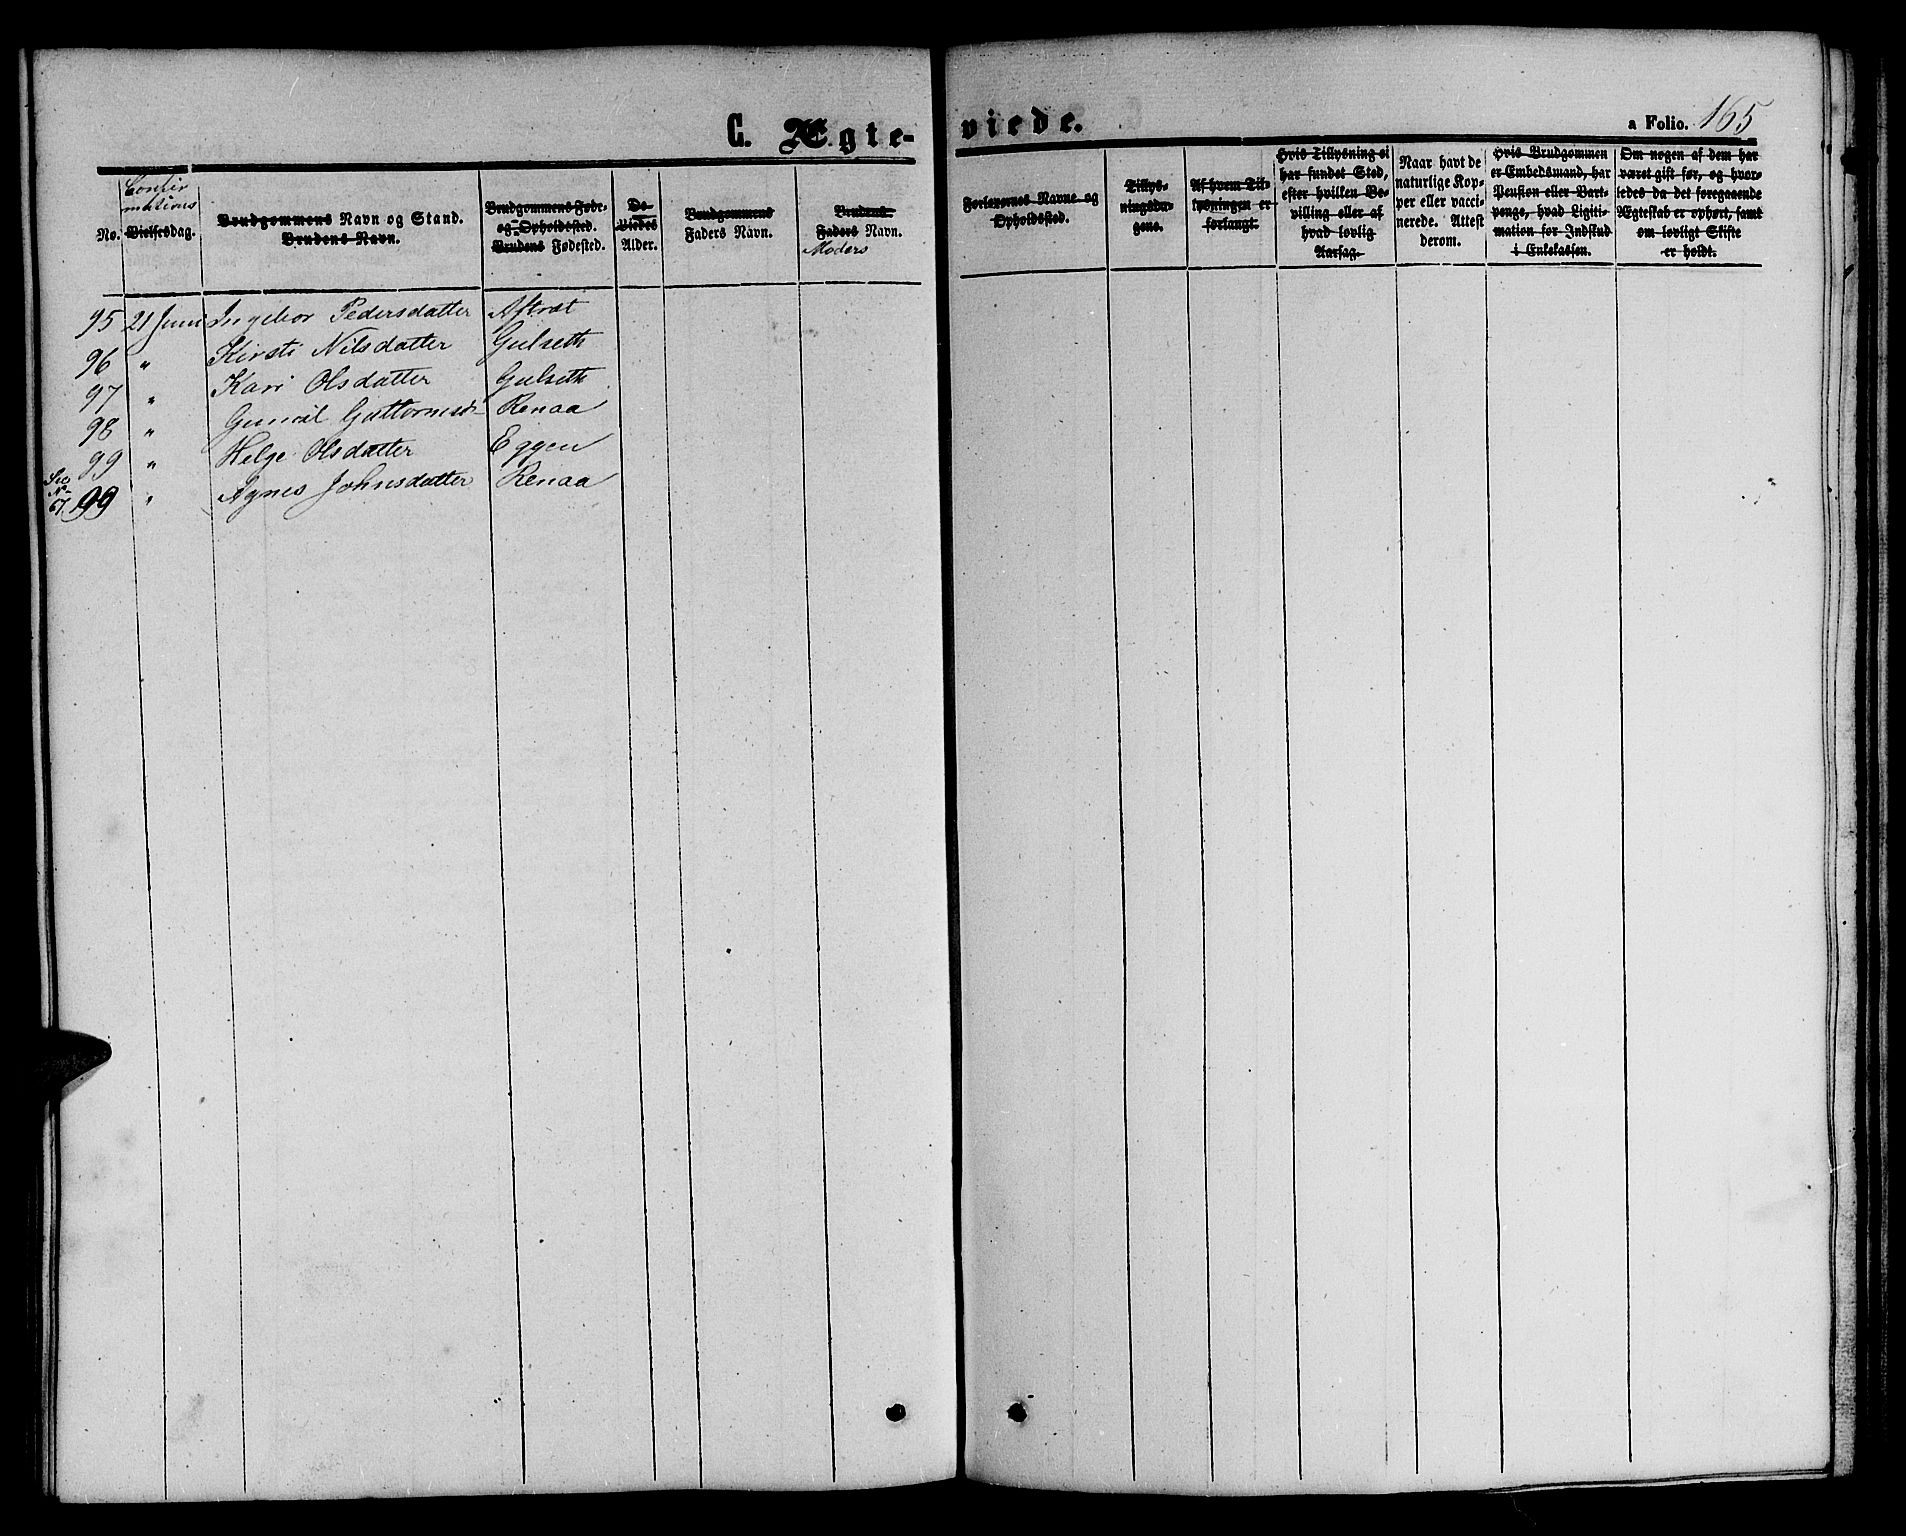 C. Ægte-
viede.
a Folio. 165
Confir
mations
No.
Vielsesdag.
Brudgommens Navn og Stand.
Brudens Navn.
Brudgommens Føde-
og Opholdssted.
Brudens Fødested.
De
Viedes
Alder.
Brudgommens
Faders Navn.
Brudens
Faders Navn.
Moders
Forlovernes Navne og
Opholdssted.
Tillys-
ningsda-
gene.
Af hvem Til-
lysningen er
forlangt.
Hvis Tillysning ei
har fundet Sted,
efter hvilken Be-
villing eller af
hvad lovlig
Aarsag.
Naar havt de
naturlige Kop-
per eller vacci-
nerede. Attest
derom.
Hvis Brudgommen
er Embedsmand, har
Pension eller Vart-
penge, hvad Ligiti-
mation for Indskud
i Enkekassen.
Om nogen af dem har
været gift før, og hvor-
ledes da det foregaaende
Ægteskab er ophørt, samt
om lovligt Skifte
er holdt.
95 21 Juni Ingebor Pedersdatter Aftret
96 " Kirsti Nilsdatter Gulseth
97 " Kari Olsdatter Gulseth
98 " Gunnil Guttormsd- Renaa
99 " Helge Olsdatter Eggen
99 " Agnes Johnsdatter Renaa
No
67